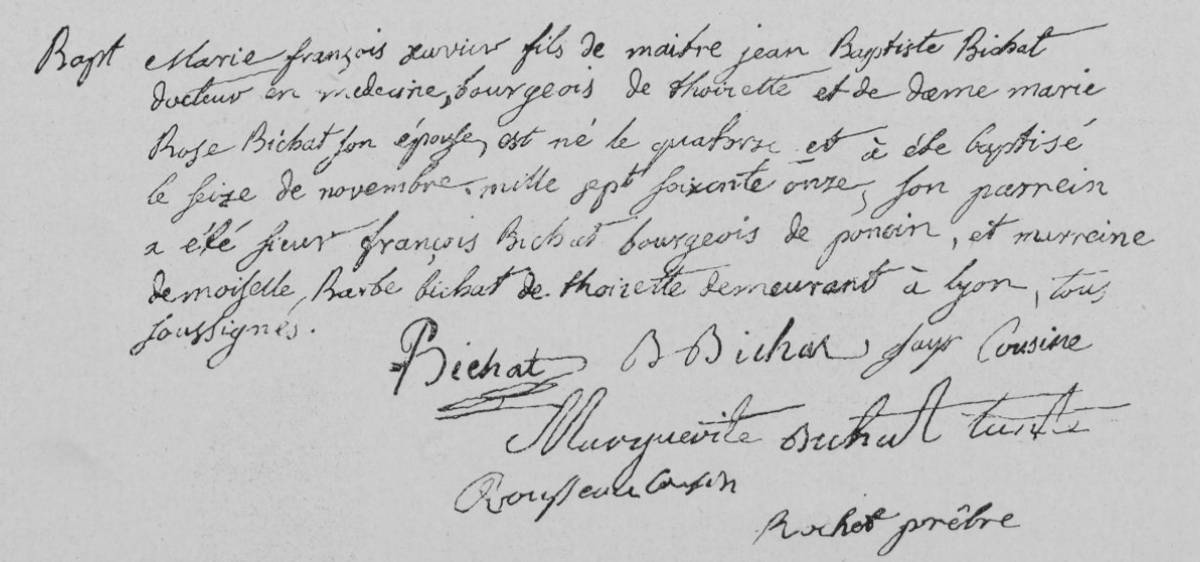 Bapt Marie françois xavier fils de maitre jean Baptiste Bichat
docteur en medecine, bourgeois de thoirette et de dame marie
Rose Bichat son épouse, est né le quatorze et à été baptisé
le seize de novembre mille sept soixante onze, son parrein
a été sieur françois Bichat bourgeois de poncin, et marreine
demoiselle, Barbe bichat de thoirette demeurant à lyon, tous
soussignés.
Bichat B Bichat, Cousine
Marguerite Bichat tante
Rousseau cousin
Rochet prêbre